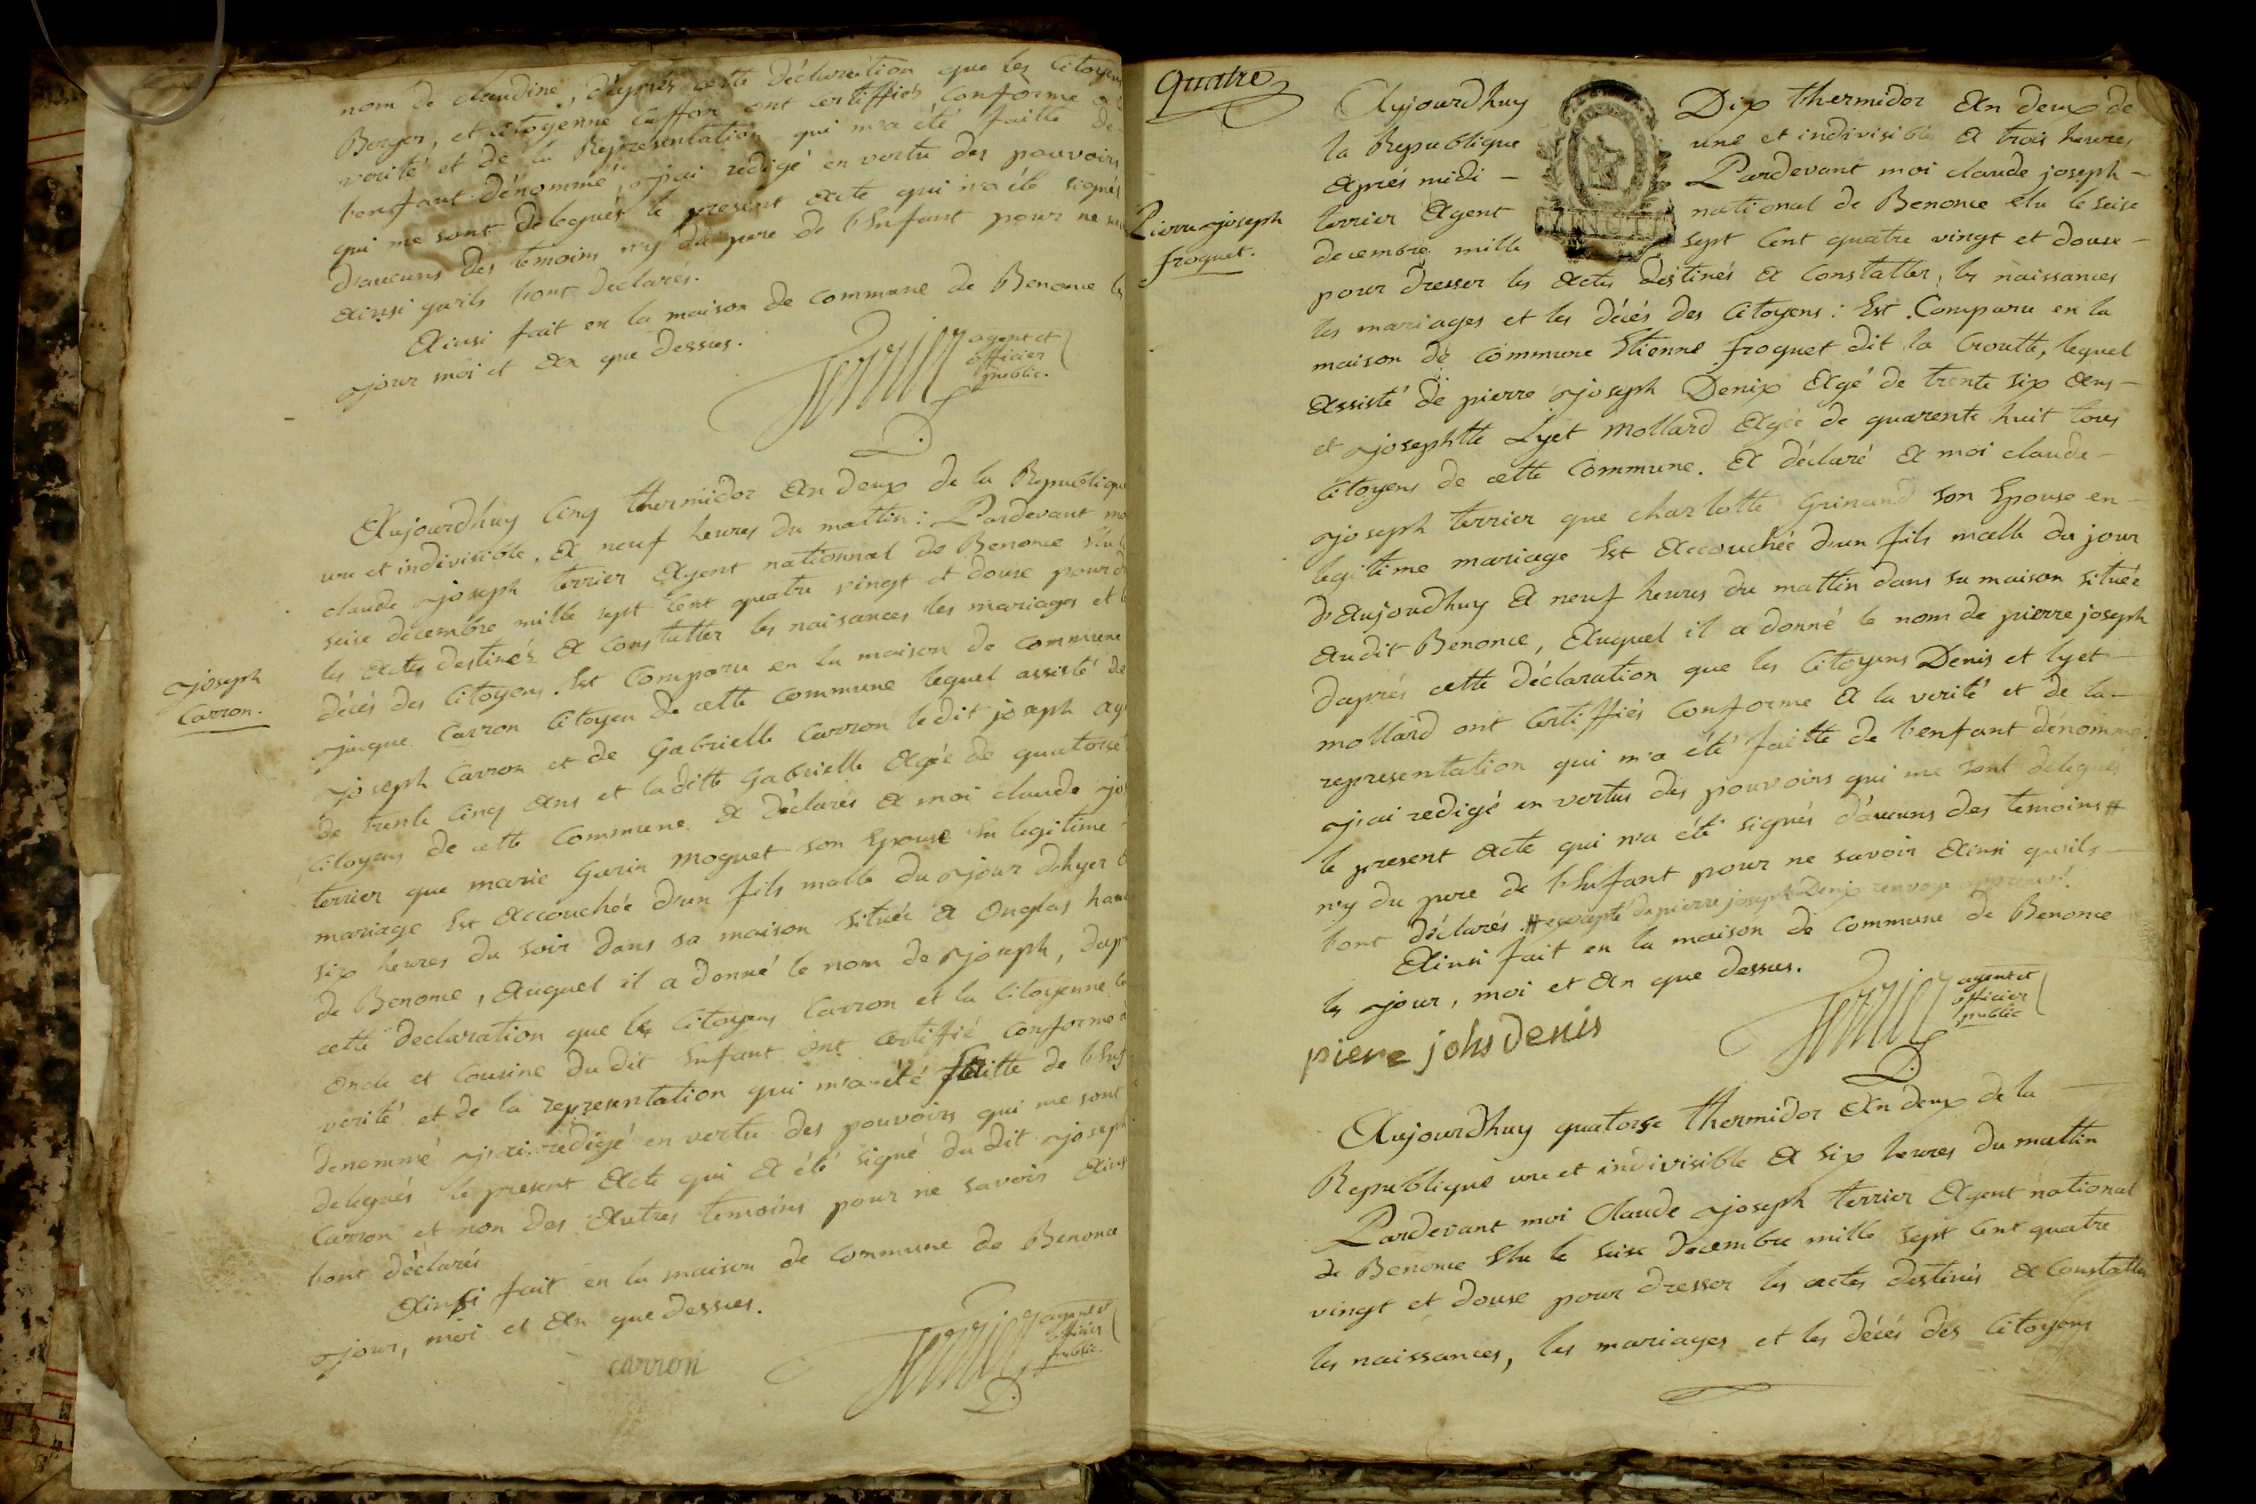 nom de claudine, d'aprés cette déclaration que les Citoyens
Berger, et Citoyenne Caffon ont certiffiés conforme a la
verité et de la Representation qui m'a été faitte de
l'enfant dénommé, j'ai redigé en vertu des pouvoirs
qui me sont delegués le present acte qui n'a été signés
d'aucuns des temoins n'y du pere de l'Enfant pour ne
ainsi qu'ils l'ont declarés.
Ainsi fait en la maison de commune de Benonce les
jour moi et an que dessus.
Terrier agent et
officier
public.
Joseph
Carron.
Aujourdhuy Cinq thermidor an deux de la Republique
une et indivisible, a neuf heures du mattin: Pardevant moi
claude joseph terrier agent nationnal de Benonce Elu le
seise decembre mille sept Cent quatre vingt et douse pour
les actes destinés a constatter les naisances les mariages et
décés des Citoyens. Est Comparu en la maison de commune
jaque Carron Citoyen de cette commune lequel assisté de
joseph Carron et de Gabrielle Carron ledit joseph agé
de trente Cinq ans et laditte Gabrielle agée de quatorse
Citoyens de cette commune. a déclarés a moi claude jo
terrier que marie Gurin moguet son Epouse En legitime
mariage Est accouchée d'un fils malle du jour d'hyer
six heures du soir dans sa maison située a Onglas
de Benonce, auquel il a donné le nom de joseph,
cette declaration que les Citoyens Carron et la Citoyenne
Oncle et Cousine du dit Enfant ont certifié conforme a
verité et de la representation qui m'a été faitte de
denommé j'ai redigé en vertu des pouvoirs qui me sont
delegués le present acte qui a été signé du dit joseph
Carron et non des autres temoins pour ne savoir
l'ont déclarés
Ainsi fait en la maison de commune de Benonce
jour, moi et an que dessus.
carron
Terrier agent et
officier
public.
Quatre
Aujourdhuy Dix thermidor an deux de
la Republique une et indivisible a trois heures
aprés midi - Pardevant moi claude joseph -
terrier agent national de Benonce elu le seise
decembre mille sept Cent quatre vingt et douse -
Pierre joseph
froquet.
pour dresser les actes destinés a constatter, les naissances
les mariages et les décés des Citoyens: Est Comparu en la
maison de commune Etienne froquet dit la Croutte, lequel
assisté de pierre joseph Denix agé de trente six ans -
et josephtte Lyet mollard agée de quarente huit tous
Citoyens de cette commune. a déclaré a moi claude -
joseph terrier que charlotte Grinand son Epouse en -
legitime mariage Est accouchée d'un fils malle du jour
d'aujoudhuy a neuf heures du mattin dans sa maison située
audit Benonce, auquel il a donné le nom de pierre joseph
daprés cette déclaration que les Citoyens Denis et lyet -
mollard ont certiffiés conforme a la verité et de la -
representation qui m'a été faitte de l'enfant dénommé.
j'ai redigé en vertus des pouvoirs qui me sont delegués
le present acte qui n'a été signés d'aucuns des temoins #
n'y du pere de l'Enfant pour ne savoir ainsi qu'ils -
l'ont déclarés. # excepté de pierre joseph Denix renvoye approuvé.
Ainsi fait en la maison de commune de Benonce
les jour, moi et an que dessus.
Terrier agent et
officier
public
piere johs denis
Aujourdhuy quatorse thermidor an deux de la
Republique une et indivisible a six heures du mattin
Pardevant moi Claude joseph terrier agent national
de Benonce Elu le seise decembre mille sept Cent quatre
vingt et douse pour dresser les actes destinés a constatter
les naissances, les mariages et les décés des Citoyens